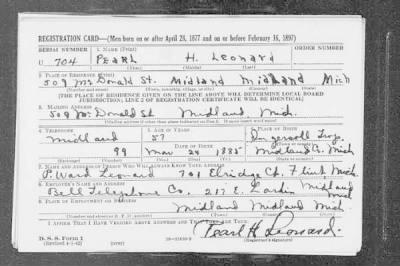 REGISTRATION CARD—(Men born on or after April 28, 1877 and on or before February 16, 1897)
SERIAL NUMBER 1. NAME (Print) ORDER NUMBER
U 704 PEARL H. Leonard
(First) (Middle) (Last)
2. PLACE OF RESIDENCE (Print)
509 McDonald St. Midland Midland Mich
(Number and street) (Town, township, village, or city) (County) (State)
[THE PLACE OF RESIDENCE GIVEN ON THE LINE ABOVE WILL DETERMINE LOCAL BOARD
JURISDICTION; LINE 2 OF REGISTRATION CERTIFICATE WILL BE IDENTICAL]
3. MAILING ADDRESS
509 McDonald St. Midland Mich.
[Mailing address if other than place indicated on line 2. If same insert word same]
4. TELEPHONE 5. AGE IN YEARS 6. PLACE OF BIRTH
Midland 57 Ingersoll Twp.
DATE OF BIRTH
99 Mar 24 1885 Midland Co. Mich
7. NAME AND ADDRESS OF PERSON WHO WILL ALWAYS KNOW YOUR ADDRESS
P. Ward Leonard 701 Flint Mich
8. EMPLOYER'S NAME AND ADDRESS
Bell Telephone Co. 217 E. Midland Mich
9. PLACE OF EMPLOYMENT OR BUSINESS
Midland Midland Mich
(Number and street or R. F. D. number) (Town) (County) (State)
I AFFIRM THAT I HAVE VERIFIED ABOVE ANSWERS AND THAT THEY ARE TRUE.
D. S. S. Form 1
Pearl H Leonard
(Registrant's signature)